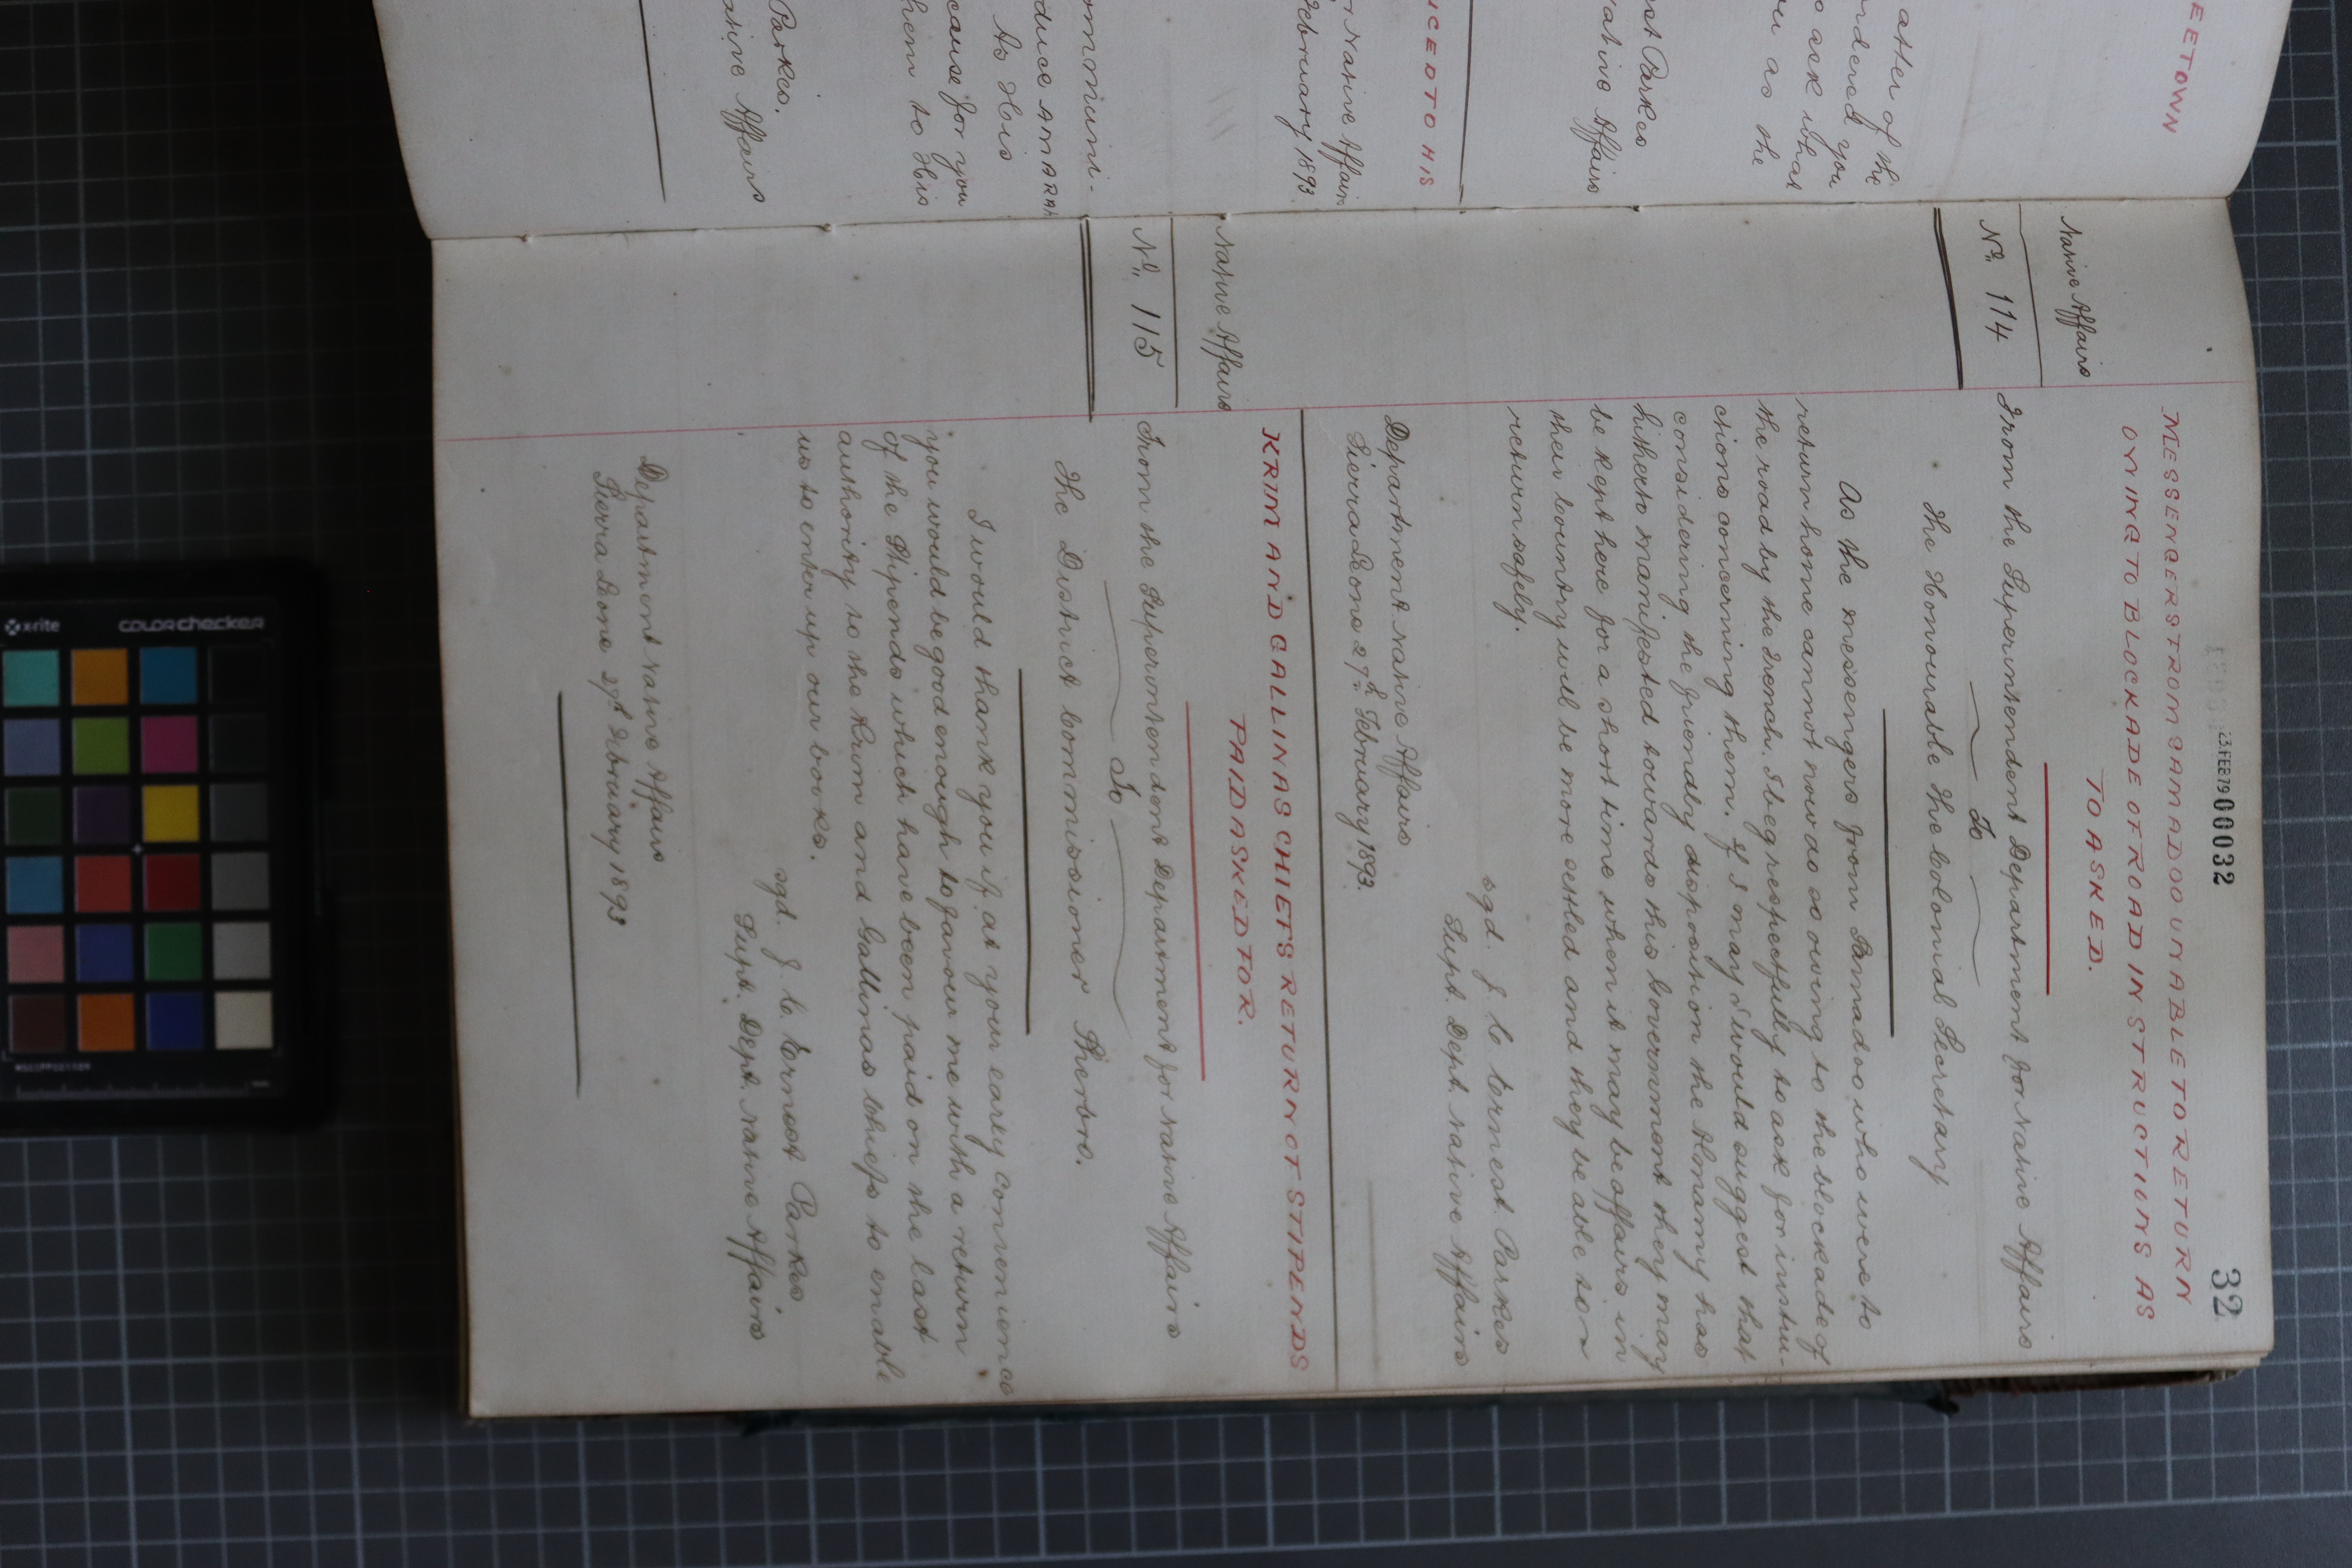 EETOWN
atter of the
rdered you
o ask what
ou as the
est Parkes
ative Affairs
UCED TO HIS
r Native Affairs
February 1893
ommuni-
duce AMARAH
to His
cause for you
hem to His
Parkes.
ative Affairs
23 FEB 79 00032
32
MESSENGERS FROM SAMADOO UNABLE TO RETURN
OWING TO BLOCKADE OF ROAD INSTRUCTIONS AS
TO ASKED.
Native Affairs
No. 114
From the Superintendent Department for Native Affairs
To
The Honourable The Colonial Secretary
As the messengers from Samadoo who were to
return home cannot now do so owing to the blockade of
the road by the French. I beg respectfully to ask for instru-
ctions concerning them. If I may I would suggest that
considering the friendly disposition the Almamy has
hitherto manifested towards this Government they may
be kept here for a short time when it may be affairs in
their country will be more settled and they be able to
return safely.
sgd. J. C. Ernest Parkes
Supt. Dept. Native Affairs
Department Native Affairs
Sierra Leone 27th February 1893.
KRIM AND GALLINAS CHIEFS RETURN OF STIPENDS
PAID ASKED FOR.
Native Affairs
No. 115
From the Superintendent Department for Native Affairs
To
The District Commissioner Sherbro.
I would thank you if at your early convenience
you would be good enough to favour me with a return
of the Stipends which have been paid on the last
authority to the Krim and Gallinas Chiefs to enable
us to enter up our books.
sgd. J. C. Ernest Parkes
Supt. Dept. Native Affairs
Department Native Affairs
Sierra Leone 27th February 1893
x-rite
colorchecker